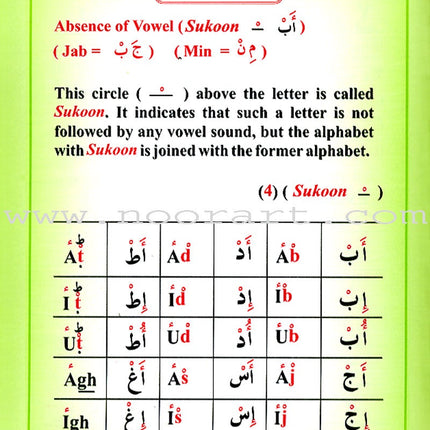 Absence of Vowel (Sukoon ـْ ) أَبْ
( Jab = جَبْ ) ( Min = مِنْ )
This circle ( ـْ ) above the letter is called
Sukoon. It indicates that such a letter is not
followed by any vowel sound, but the alphabet
with Sukoon is joined with the former alphabet.
(4) ( Sukoon ـْ )
www.noorart.com
At أَطْ Ad أَدْ Ab أَبْ
It إِطْ Id إِدْ Ib إِبْ
Ut أُطْ Ud أُدْ Ub أُبْ
Agh أَغْ As أَسْ Aj أَجْ
Igh إِغْ Is إِسْ Ij إِجْ